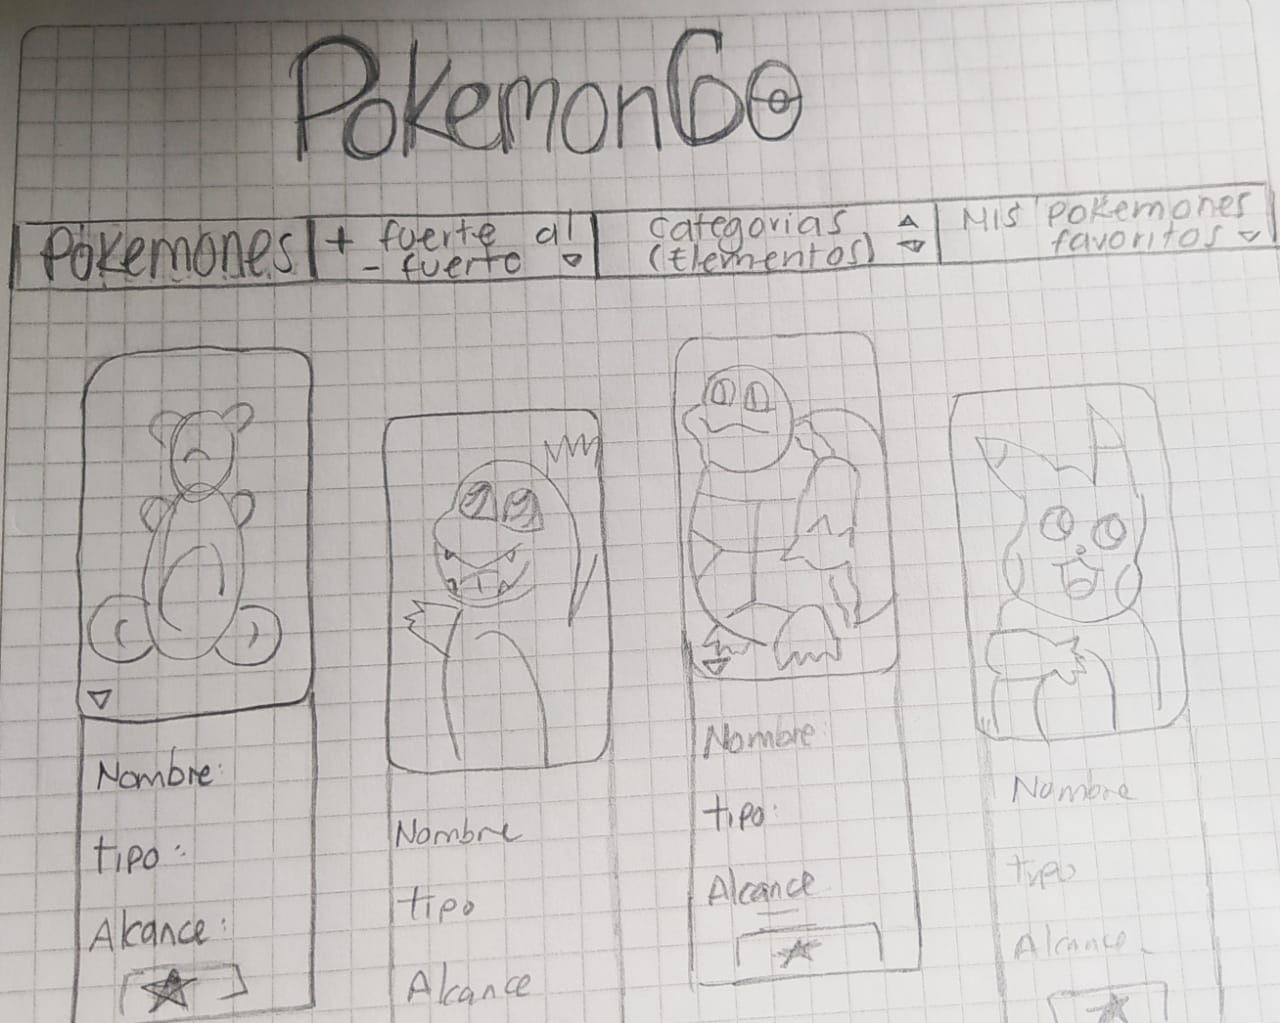 PokemonGo
Pokemones
+ fuerte al
- fuerte
categorias
(Elementos)
Mis pokemones
favoritos
Nombre:
tipo:
Alcance:
Nombre
tipo
Alcance
Nombre
tipo:
Alcance
Nombre
tipo
Alcance